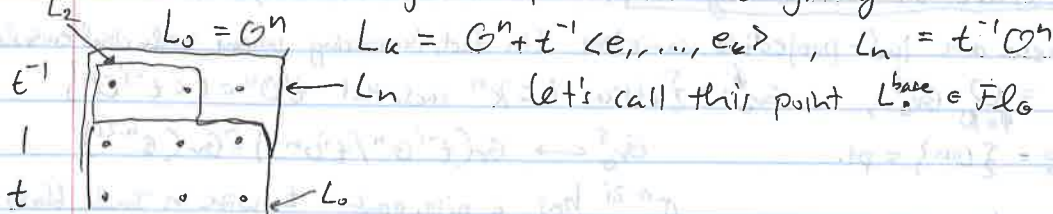 L₂ L₀ = 𝒪ⁿ Lₖ = 𝒪ⁿ + t⁻¹ <e₁, ..., eₖ> , Lₙ = t⁻¹ 𝒪ⁿ
t⁻¹ ← Lₙ let's call this point L•ᵇᵃˢᵉ ∈ Fl_G
1
t ← L₀